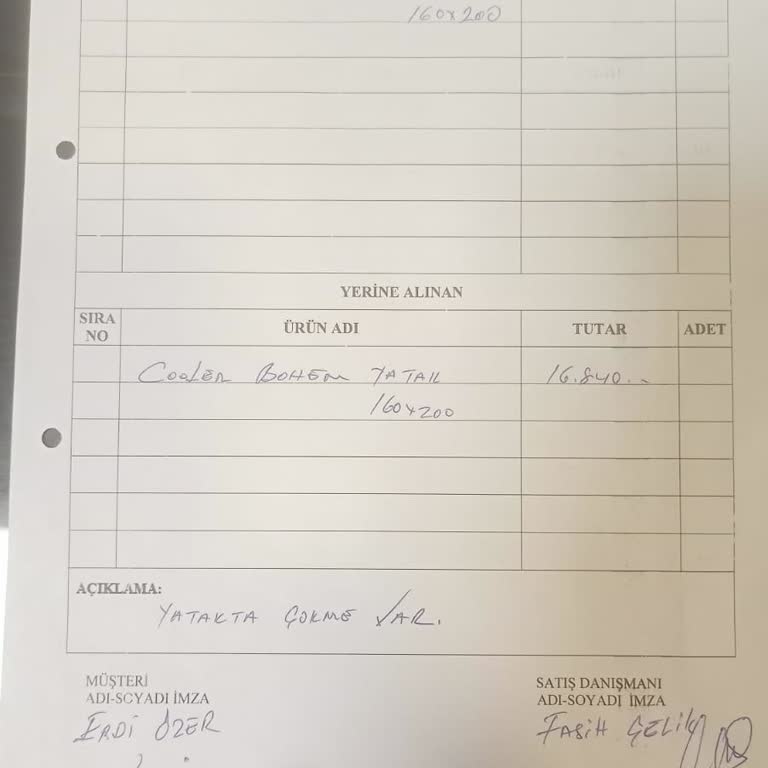 160x200
YERİNE ALINAN
SIRA NO ÜRÜN ADI TUTAR ADET
COOLER BOHEM YATAK 16.840.-
160x200
AÇIKLAMA:
YATAKTA ÇÖKME VAR.
MÜŞTERİ SATIŞ DANIŞMANI
ADI-SOYADI İMZA ADI-SOYADI İMZA
ERDİ ÖZER FASİH ÇELİK